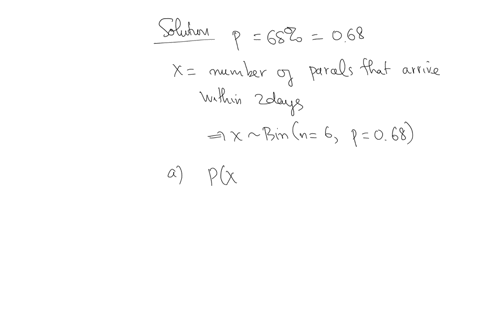 Solution p = 68% = 0.68
X = number of parcels that arrive
within 2days
⇒ X ~ Bin(n=6, p=0.68)
a) P(X